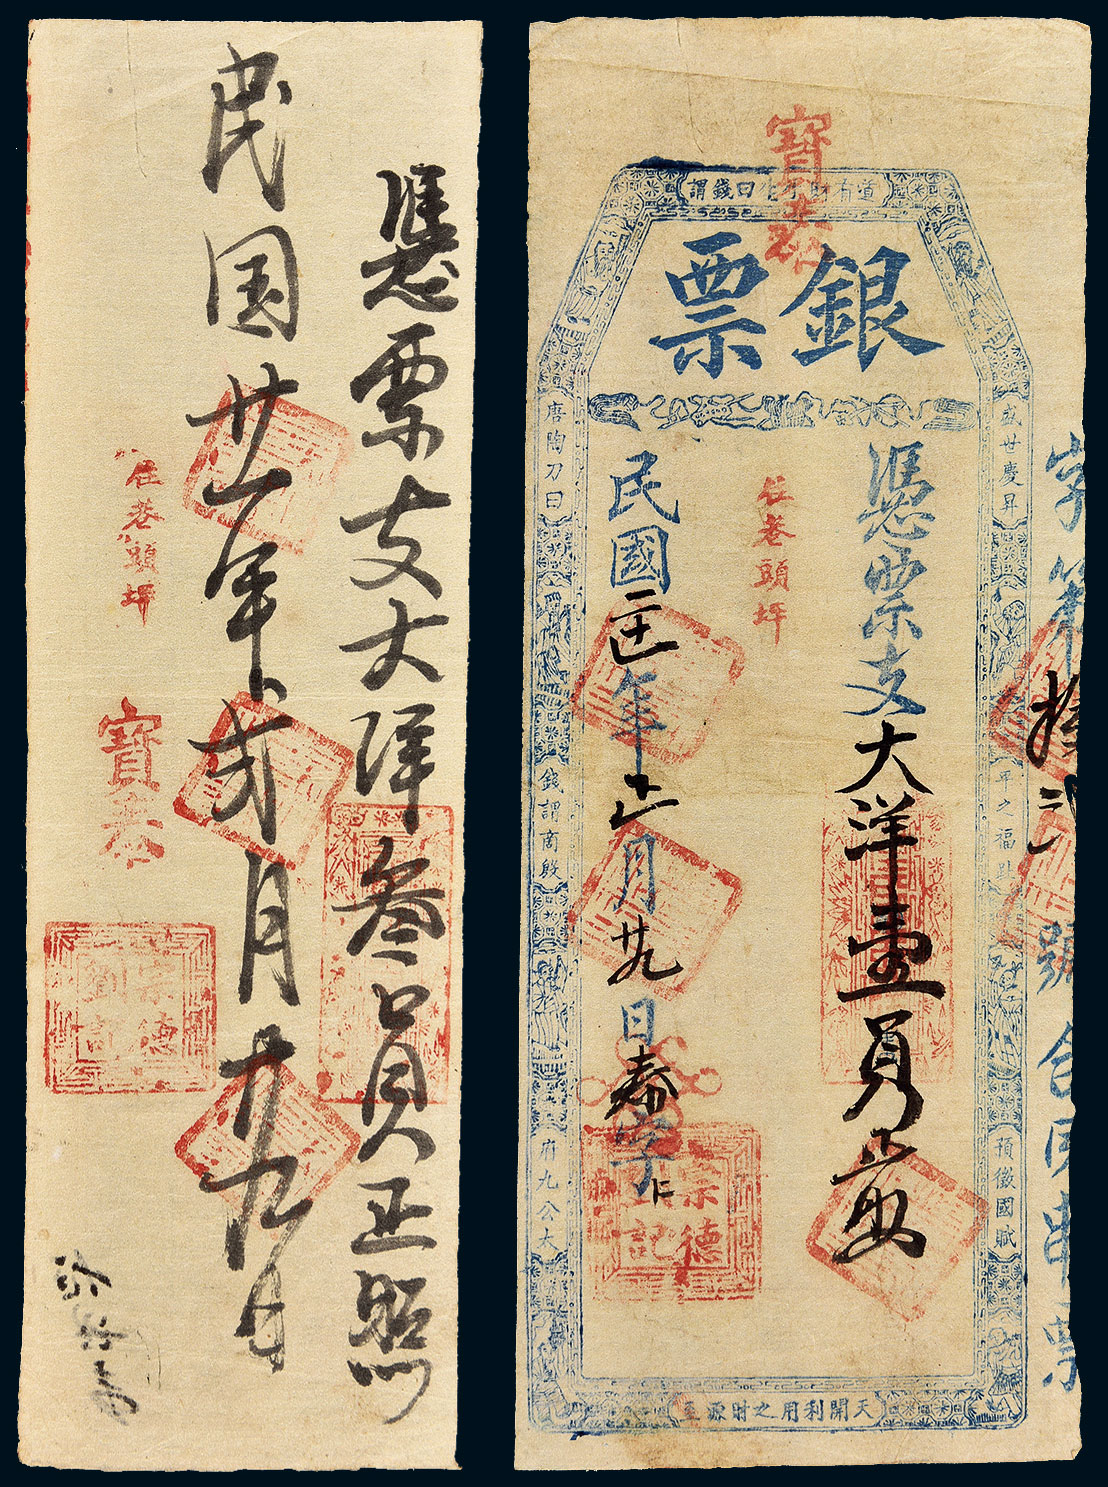 憑票支大洋叁員正照
民国廿一年弍月廿九日
住巷頭坪
寳泰
宗德
劉記
寳泰
道有財生曰錢謂
銀票
盛世慶昇
平之福
預徵國賦
憑票支大洋壹員
住巷頭坪
民國年正月廿九日泰字
宗德
記
唐陶刀曰
錢謂商殷
府九公大
天開利用之財源
字第拾號合同串票